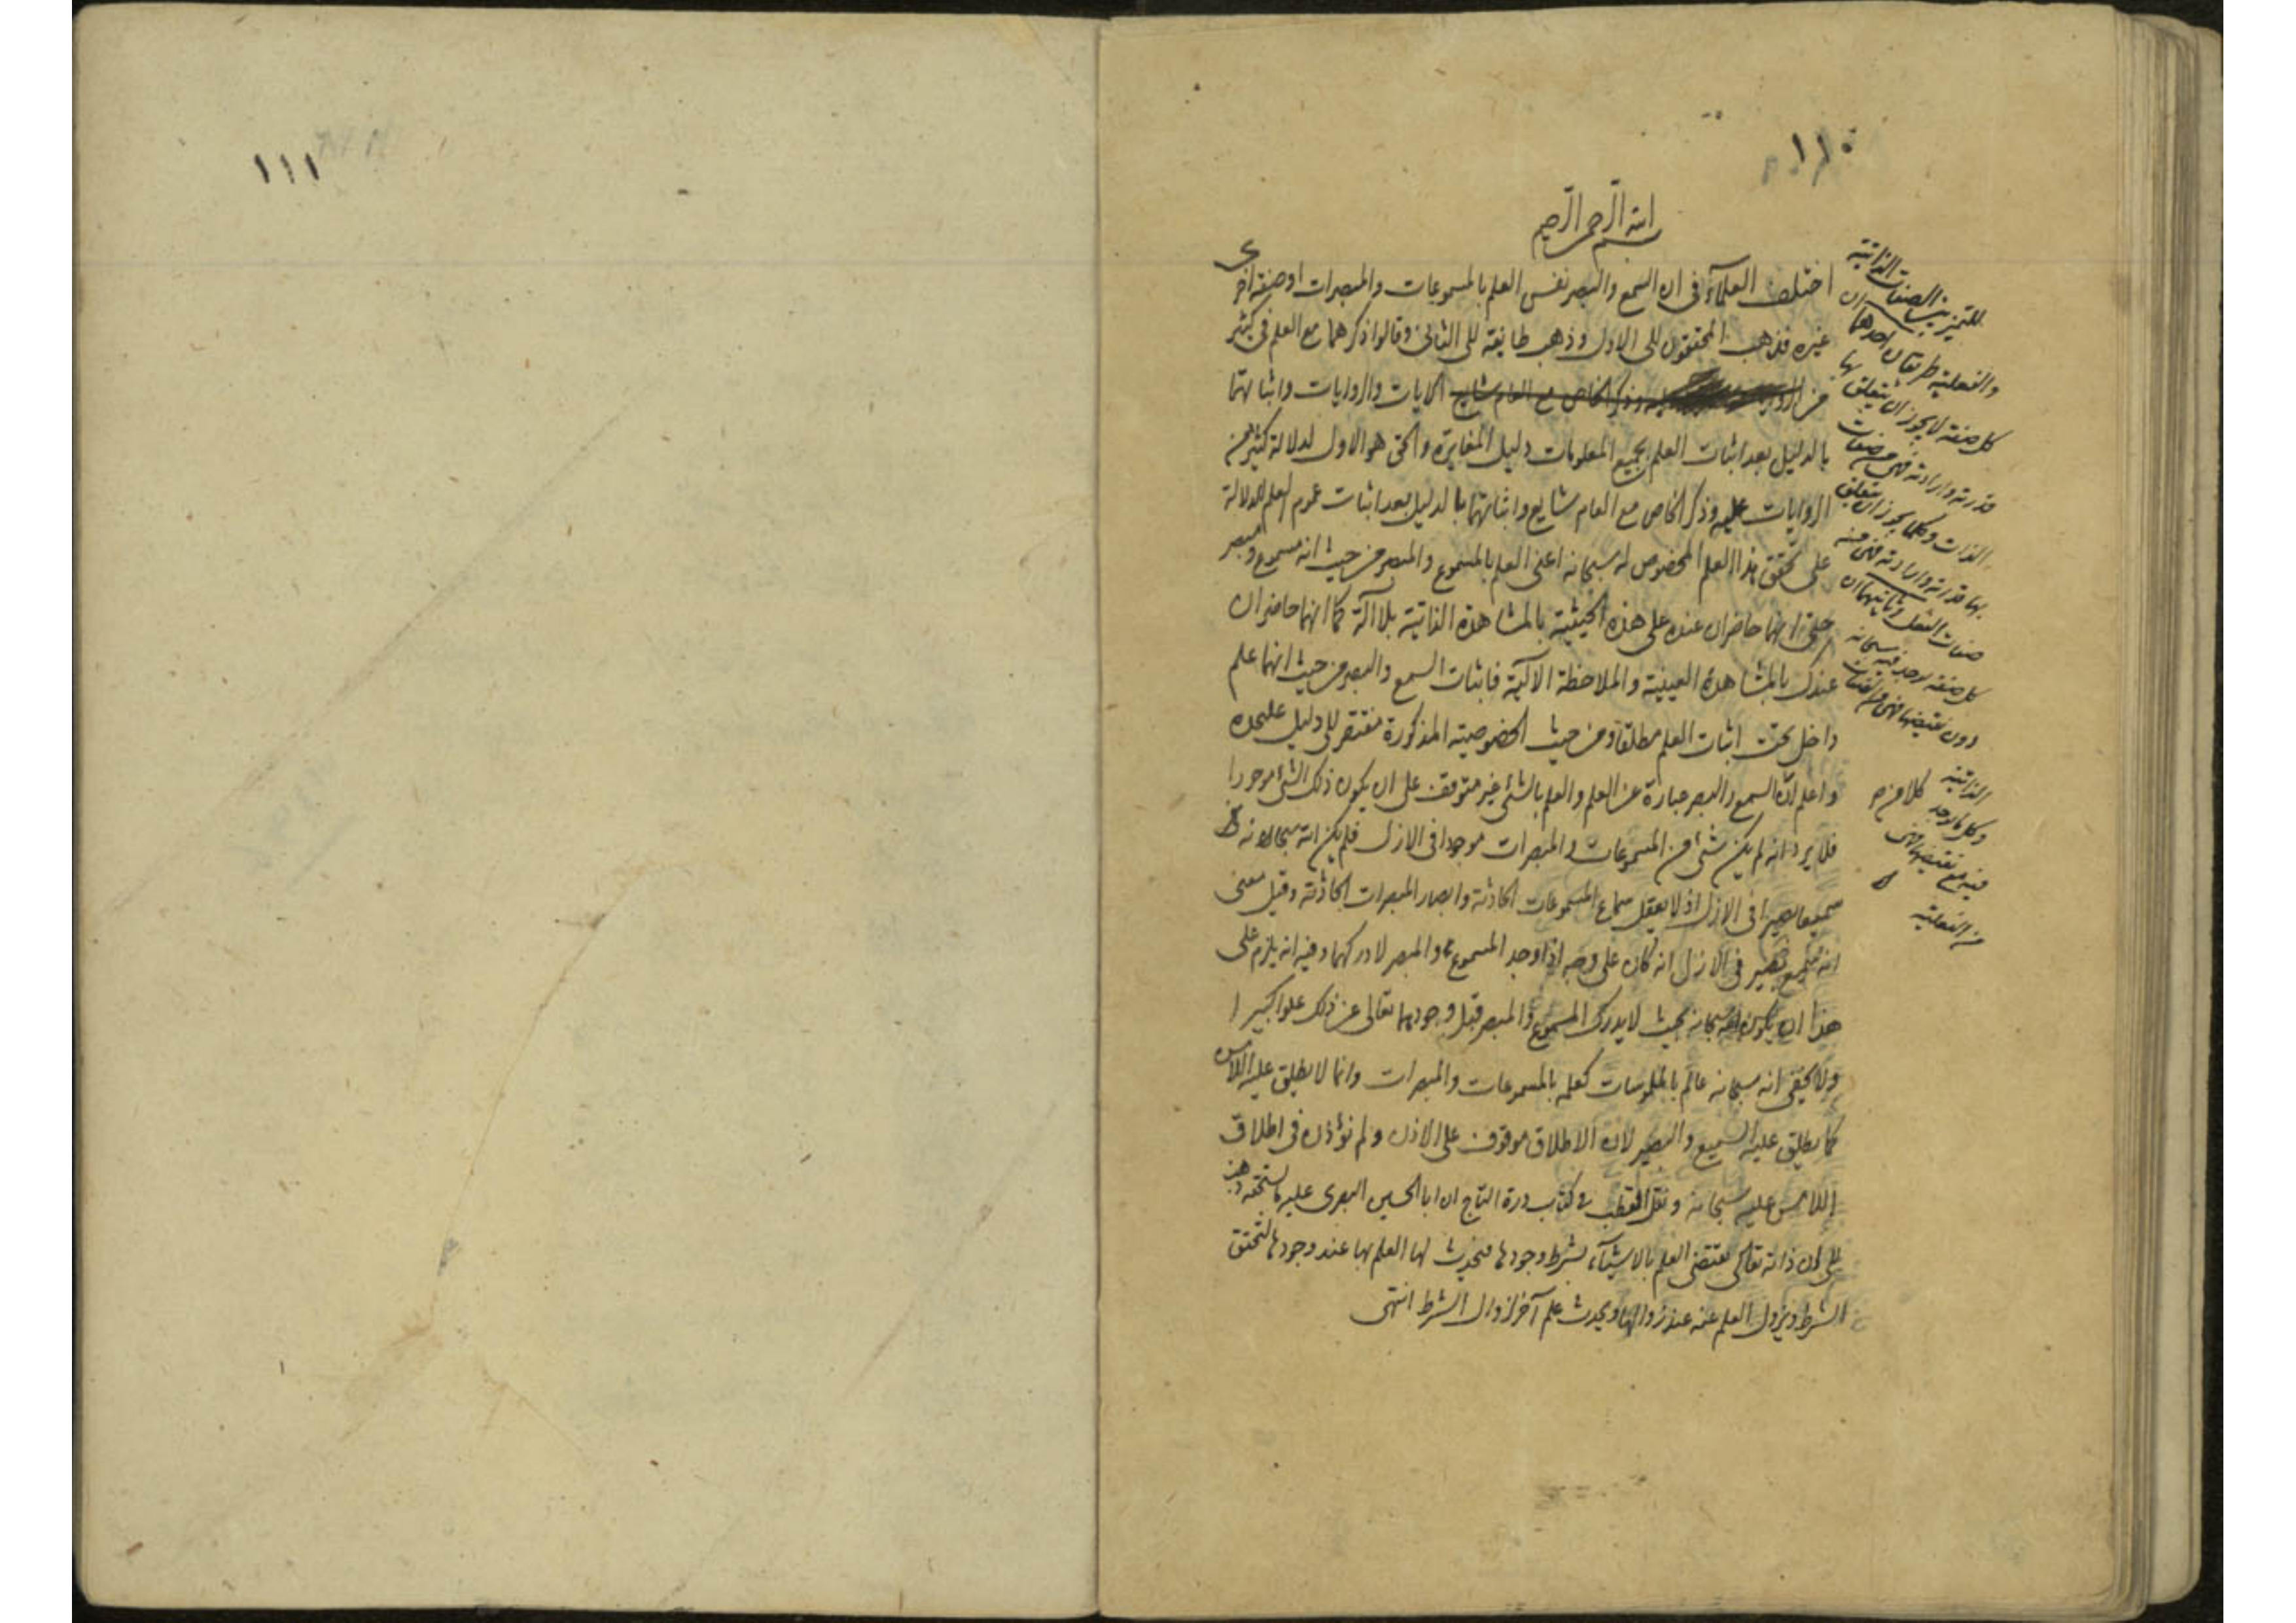 ١١٠
بسم الله الرحمن الرحيم
اختلف العلماء في ان السمع والبصر نفس العلم بالمسموعات والمبصرات او صفة اخرى
غيره فذهب المحققون الى الاول وذهب طايفة الى الثاني وقالوا ذكرهما مع العلم في كثير
من الآيات والروايات واثباتهما
بالدليل بعد اثبات العلم بجميع المعلومات دليل المغايرة والحق هو الاول لدلالة كثير من
الروايات عليه وذكر الخاص مع العام شايع واثباتهما بالدليل بعد اثبات عموم العلم للدلالة
على تحقق هذا العلم المخصوص له سبحانه اعنى العلم بالمسموع والمبصر من حيث انه مسموع ومبصر
حتى انهما حاضران عنده على هذه الحيثية بالمشاهدة الذاتية بلا آلة كما انهما حاضران
عندك بالمشاهدة العينية والملاحظة الآلية فاثبات السمع والبصر من حيث انهما علم
داخل تحت اثبات العلم مطلقا ومن حيث الخصوصية المذكورة مفتقر الى دليل عليحده
واعلم ان السمع والبصر عبارة عن العلم والعلم بالشئ غير متوقف على ان يكون ذلك الشئ موجودا
فلا يرد انه لم يكن شئ من المسموعات والمبصرات موجودا في الازل فلم يكن الله سبحانه
سميعا بصيرا في الازل اذ لا يعقل سماع المسموعات الحادثة وابصار المبصرات الحادثة وقيل معنى
انه سميع بصير في الازل انه كان على وجه اذا وجد المسموع والمبصر لادركهما وفيه انه يلزم على
هذا ان يكون الله سبحانه بحيث لا يدرك المسموع والمبصر قبل وجودهما تعالى عن ذلك علوا كبيرا
ولا يخفى انه سبحانه عالم بالملموسات كعلمه بالمسموعات والمبصرات وانما لا يطلق عليه اللامس
كما يطلق عليه السميع والبصير لان الاطلاق موقوف على الاذن ولم نؤذن في اطلاق
اللامس عليه سبحانه ونقل القطب في كتاب درة التاج ان ابا الحسين البصرى عليه ما يستحقه ذهب
الى ان ذاته تعالى تقتضى العلم بالاشياء بشرط وجودها فيحدث لها العلم بها عند وجودها لتحقق
الشرط ويزول العلم عنه عند زوالها ويحدث علم آخر لزوال الشرط انتهى
للتميز بين الصفات الذاتية
والفعلية طريقان احدهما ان
كل صفة لا يجوز ان يتعلق بها
قدرته وارادته فهى من صفات
الذات وكلما يجوز ان يتعلق
بها قدرته وارادته فهى من
صفات الفعل وثانيهما ان
كل صفة توجد فيه سبحانه
دون نقيضها فهى من الصفات
الذاتية
وكل ما توجد
فيه مع نقيضها فهى
من الفعلية
١١١